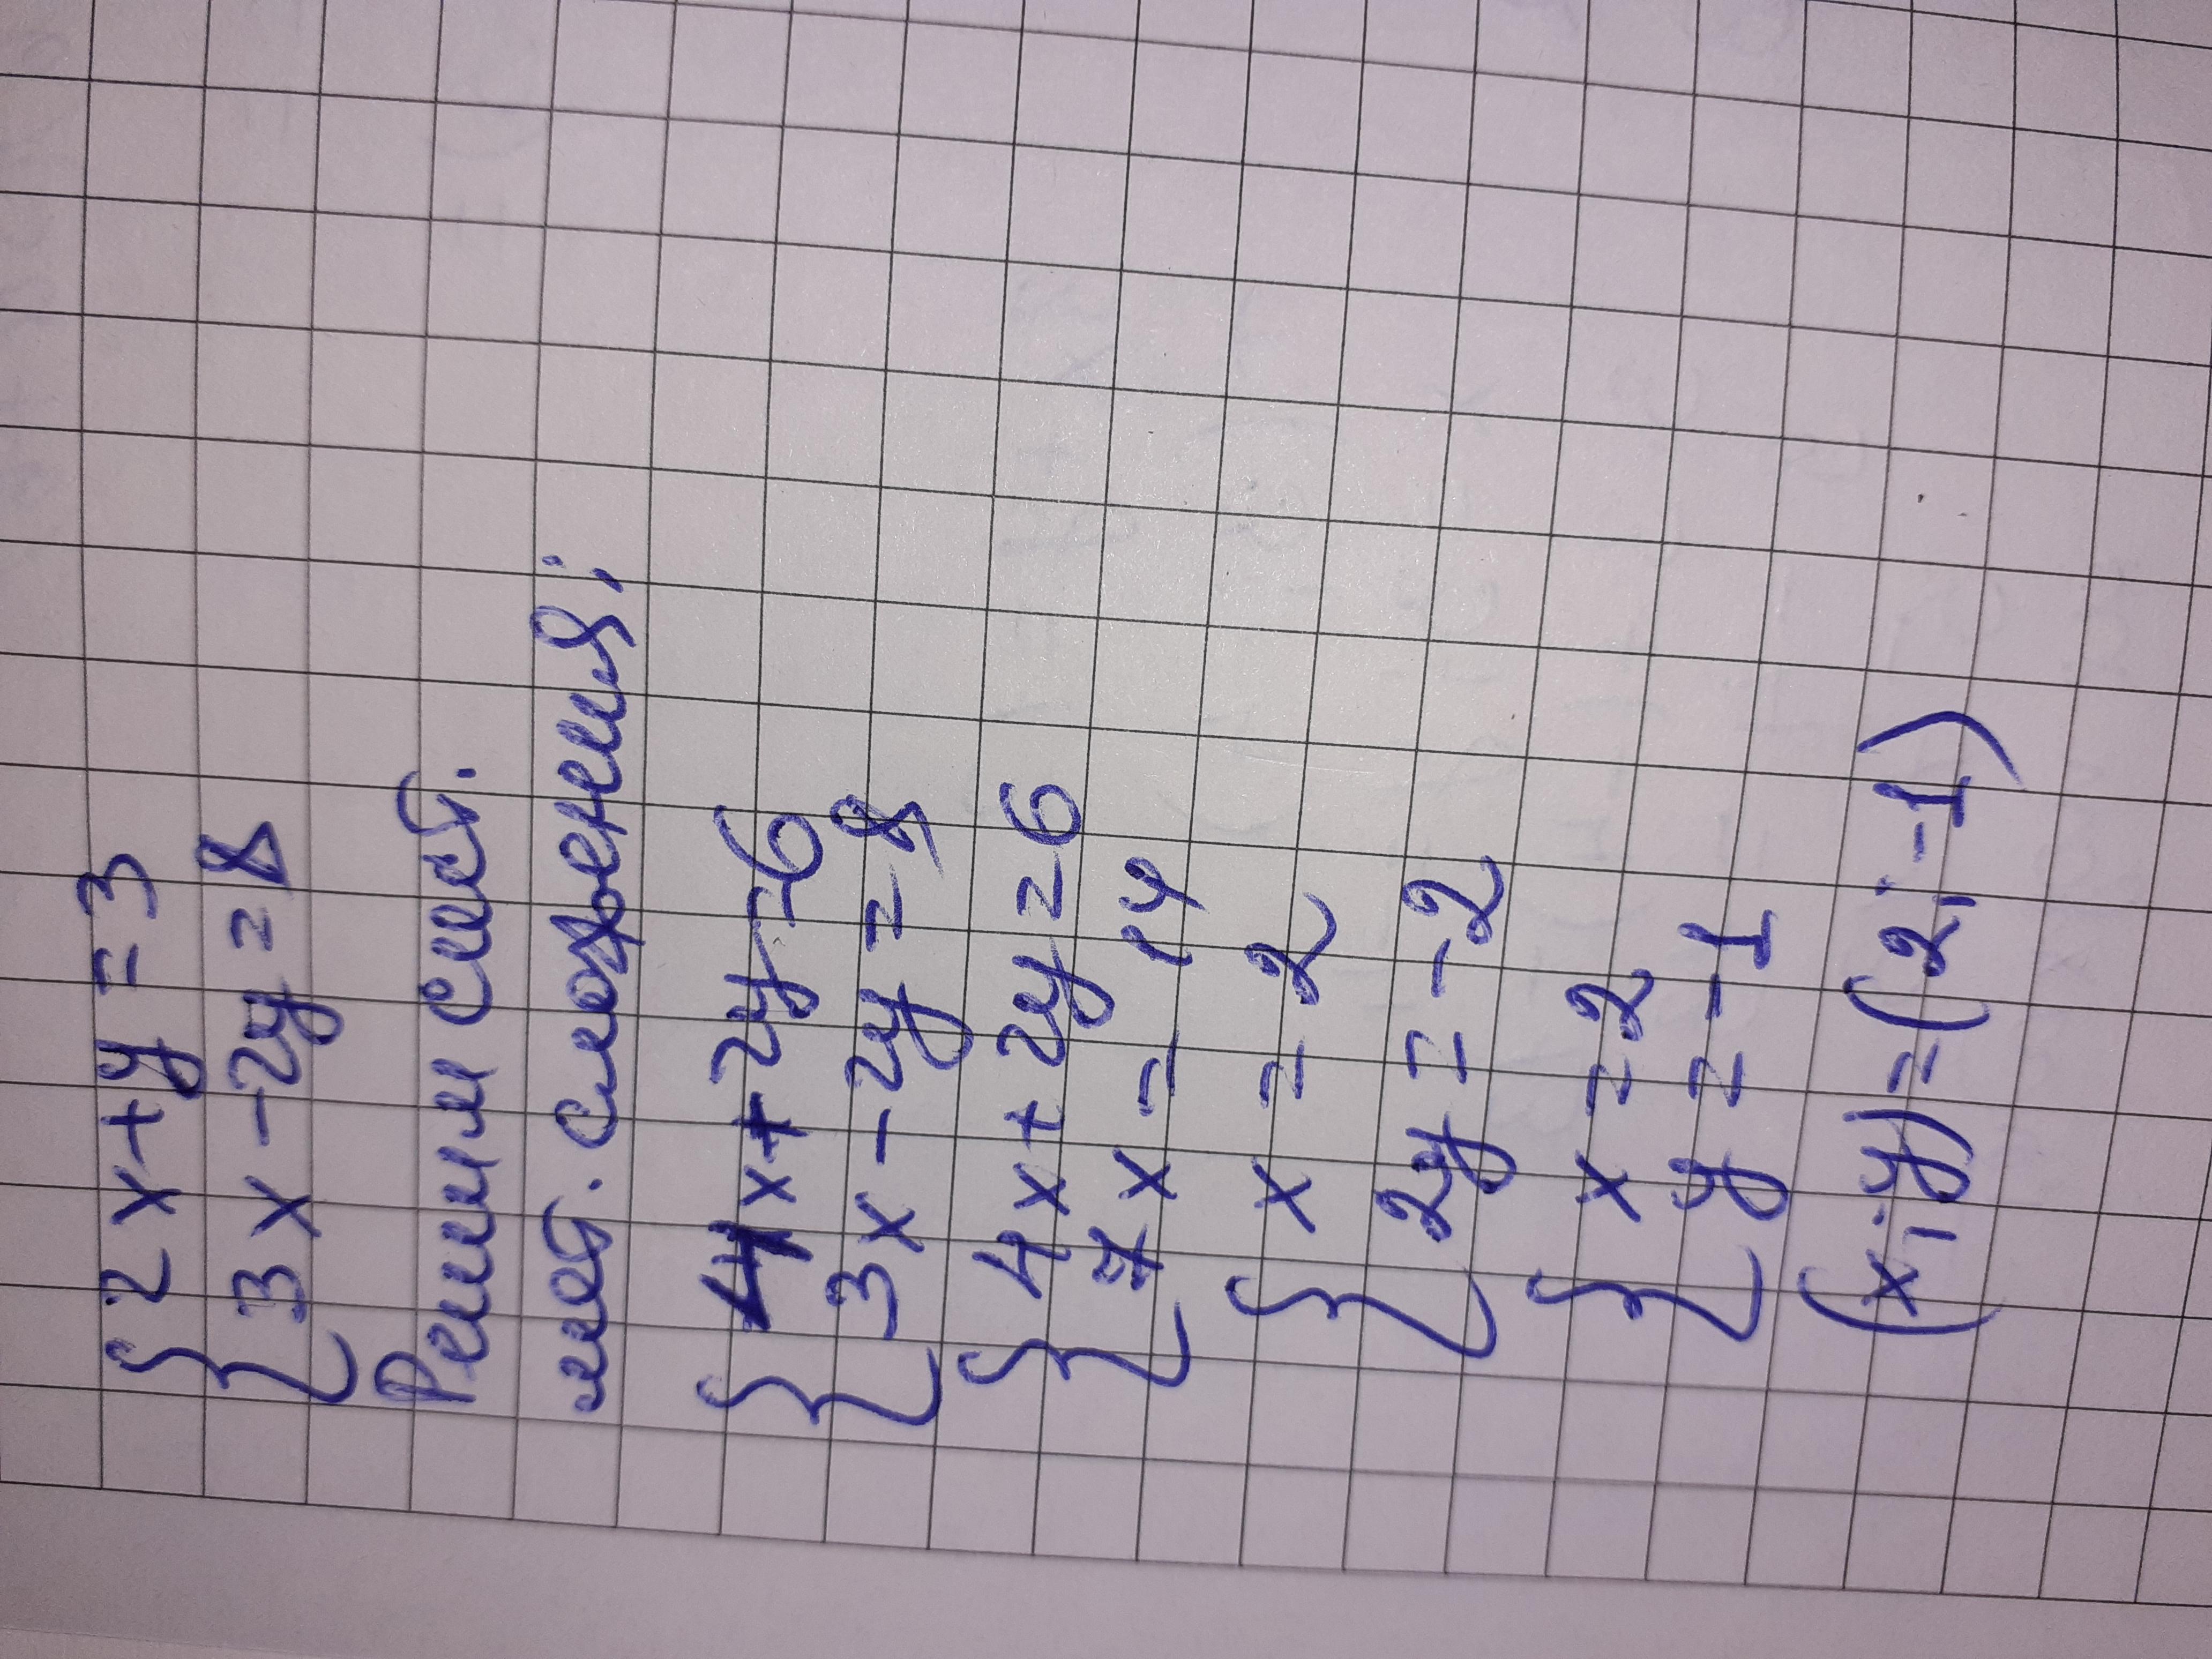 {2x+y=3
{3x-2y=8
Решим сист.
мет. сложения:
{4x+2y=6
{3x-2y=8
{4x+2y=6
{7x=14
{x=2
{2y=-2
{x=2
{y=-1
(x;y)=(2;-1)